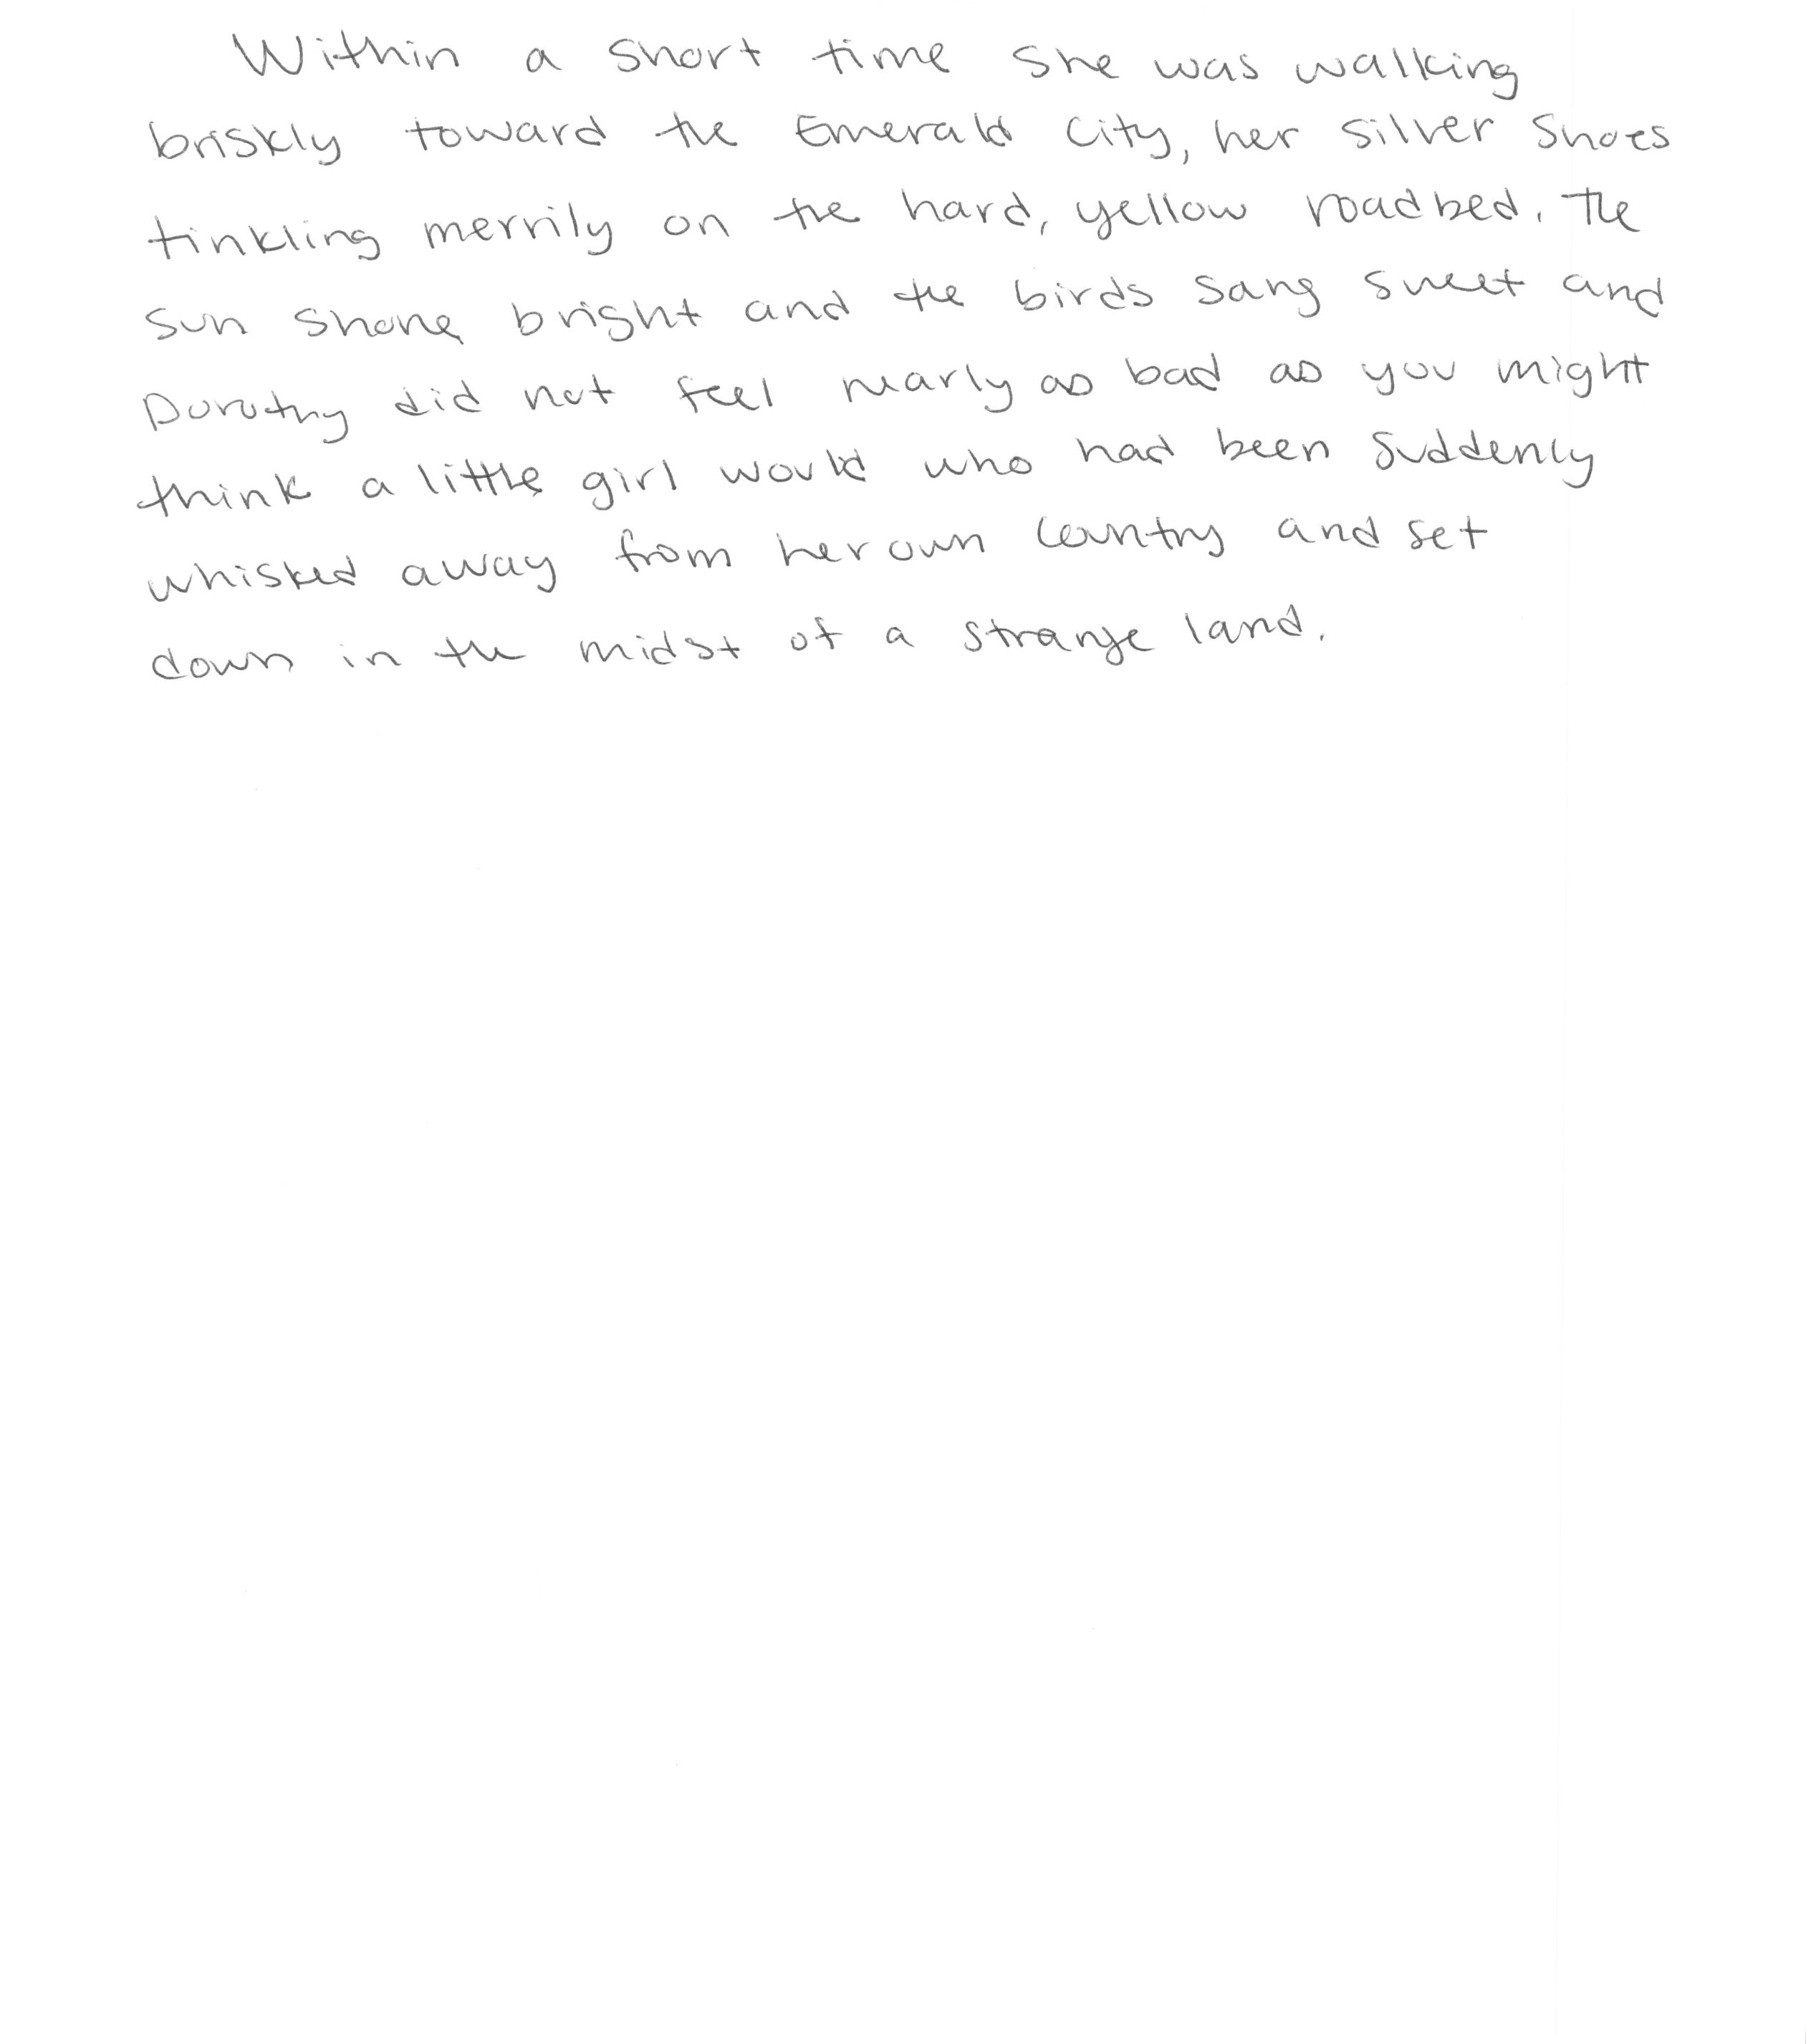 Within a short time she was walking
briskly toward the Emerald City, her silver shoes
tinkling merrily on the hard, yellow roadbed. The
sun shone bright and the birds sang sweet and
Dorothy did not feel nearly as bad as you might
think a little girl would who had been suddenly
whisked away from her own country and set
down in the midst of a strange land.